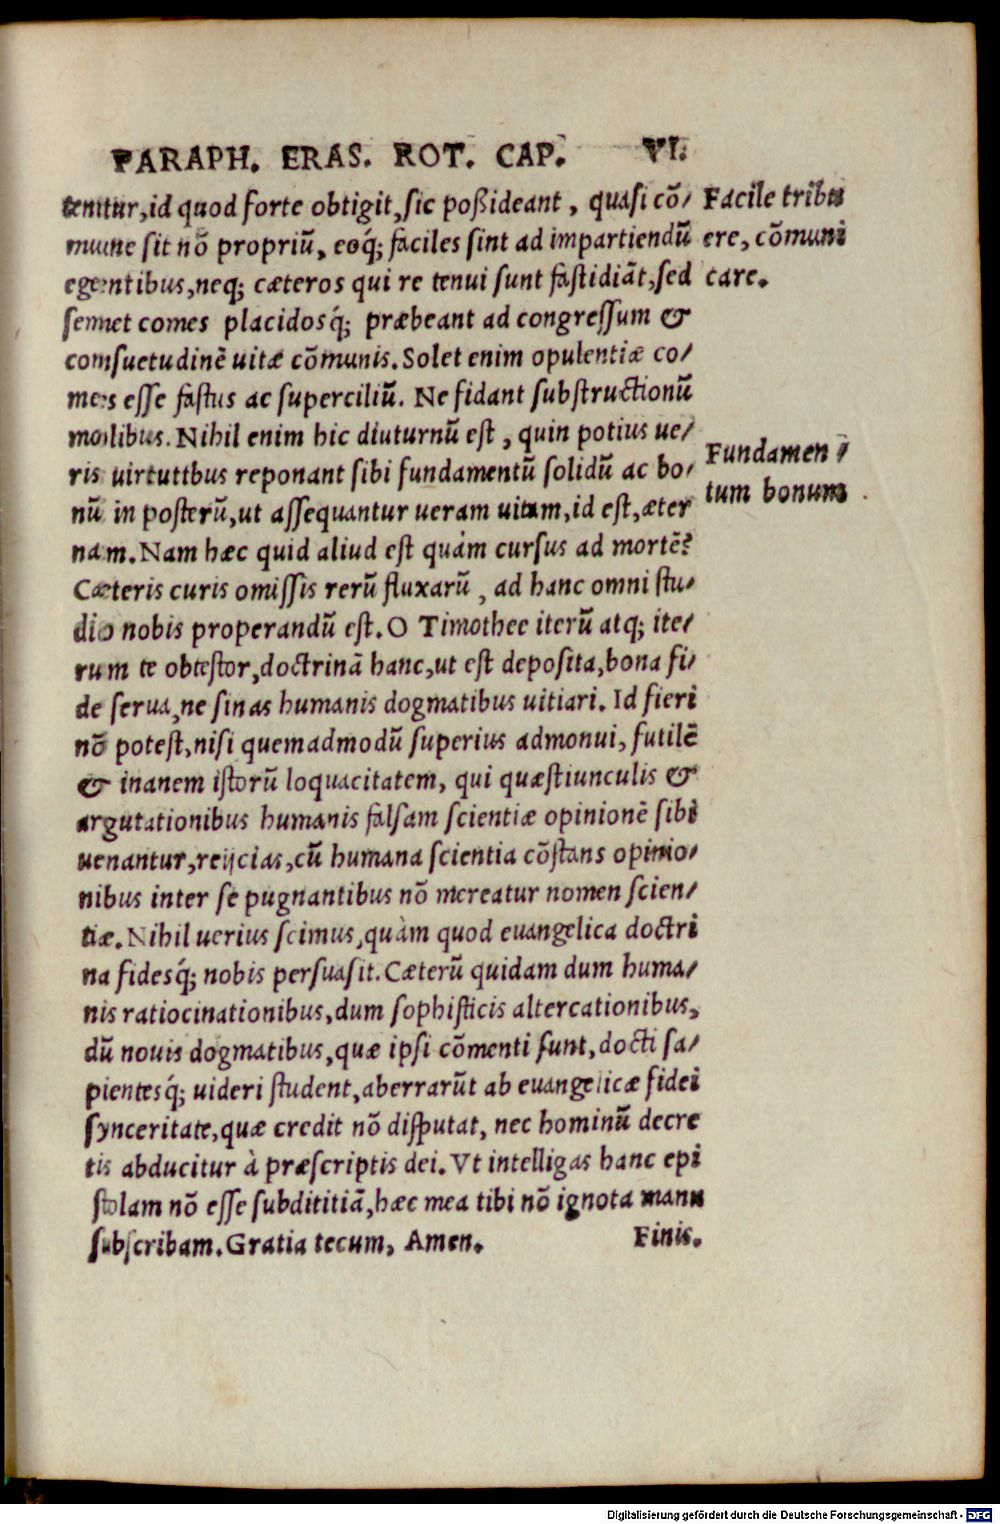 PARAPH. ERAS. ROT. CAP. VI.
tenitur, id quod forte obtigit, sic poßideant, quasi cō⸗
mune sit nō propriū, eoq́; faciles sint ad impartiendū
egentibus, neq; cæteros qui re tenui sunt fastidiāt, sed
semet comes placidosq́; præbeant ad congressum &
consuetudinē uitæ cōmunis. Solet enim opulentiæ co⸗
mes esse fastus ac superciliū. Ne fidant substructionū
molibus. Nihil enim hic diuturnū est, quin potius ue⸗
ris uirtuttbus reponant sibi fundamentū solidū ac bo⸗
nū in posterū, ut assequantur ueram uitam, id est, æter
nam. Nam hæc quid aliud est quám cursus ad mortē?
Cæteris curis omissis rerū fluxarū, ad hanc omni stu⸗
dio nobis properandū est. O Timothee iterū atq; ite⸗
rum te obtestor, doctrinā hanc, ut est deposita, bona fi⸗
de serua, ne sinas humanis dogmatibus uitiari. Id fieri
nō potest, nisi quemadmodū superius admonui, futilē
& inanem istorū loquacitatem, qui quæstiunculis &
argutationibus humanis falsam scientiæ opinionē sibi
uenantur, reijcias, cū humana scientia cōstans opinio⸗
nibus inter se pugnantibus nō mereatur nomen scien⸗
tiæ. Nihil uerius scimus, quàm quod euangelica doctri
na fidesq́; nobis persuasit. Cæterū quidam dum huma⸗
nis ratiocinationibus, dum sophisticis altercationibus,
dū nouis dogmatibus, quæ ipsi cōmenti sunt, docti sa⸗
pientesq́; uideri student, aberrarūt ab euangelicæ fidei
synceritate, quæ credit nō disputat, nec hominū decre
tis abducitur à præscriptis dei. Vt intelligas hanc epi
stolam nō esse subdititiā, hæc mea tibi nō ignota manu
subscribam. Gratia tecum, Amen. Finis.
Facile tribu
ere, cōmuni
care.
Fundamen⸗
tum bonum
Digitalisierung gefördert durch die Deutsche Forschungsgemeinschaft - DFG